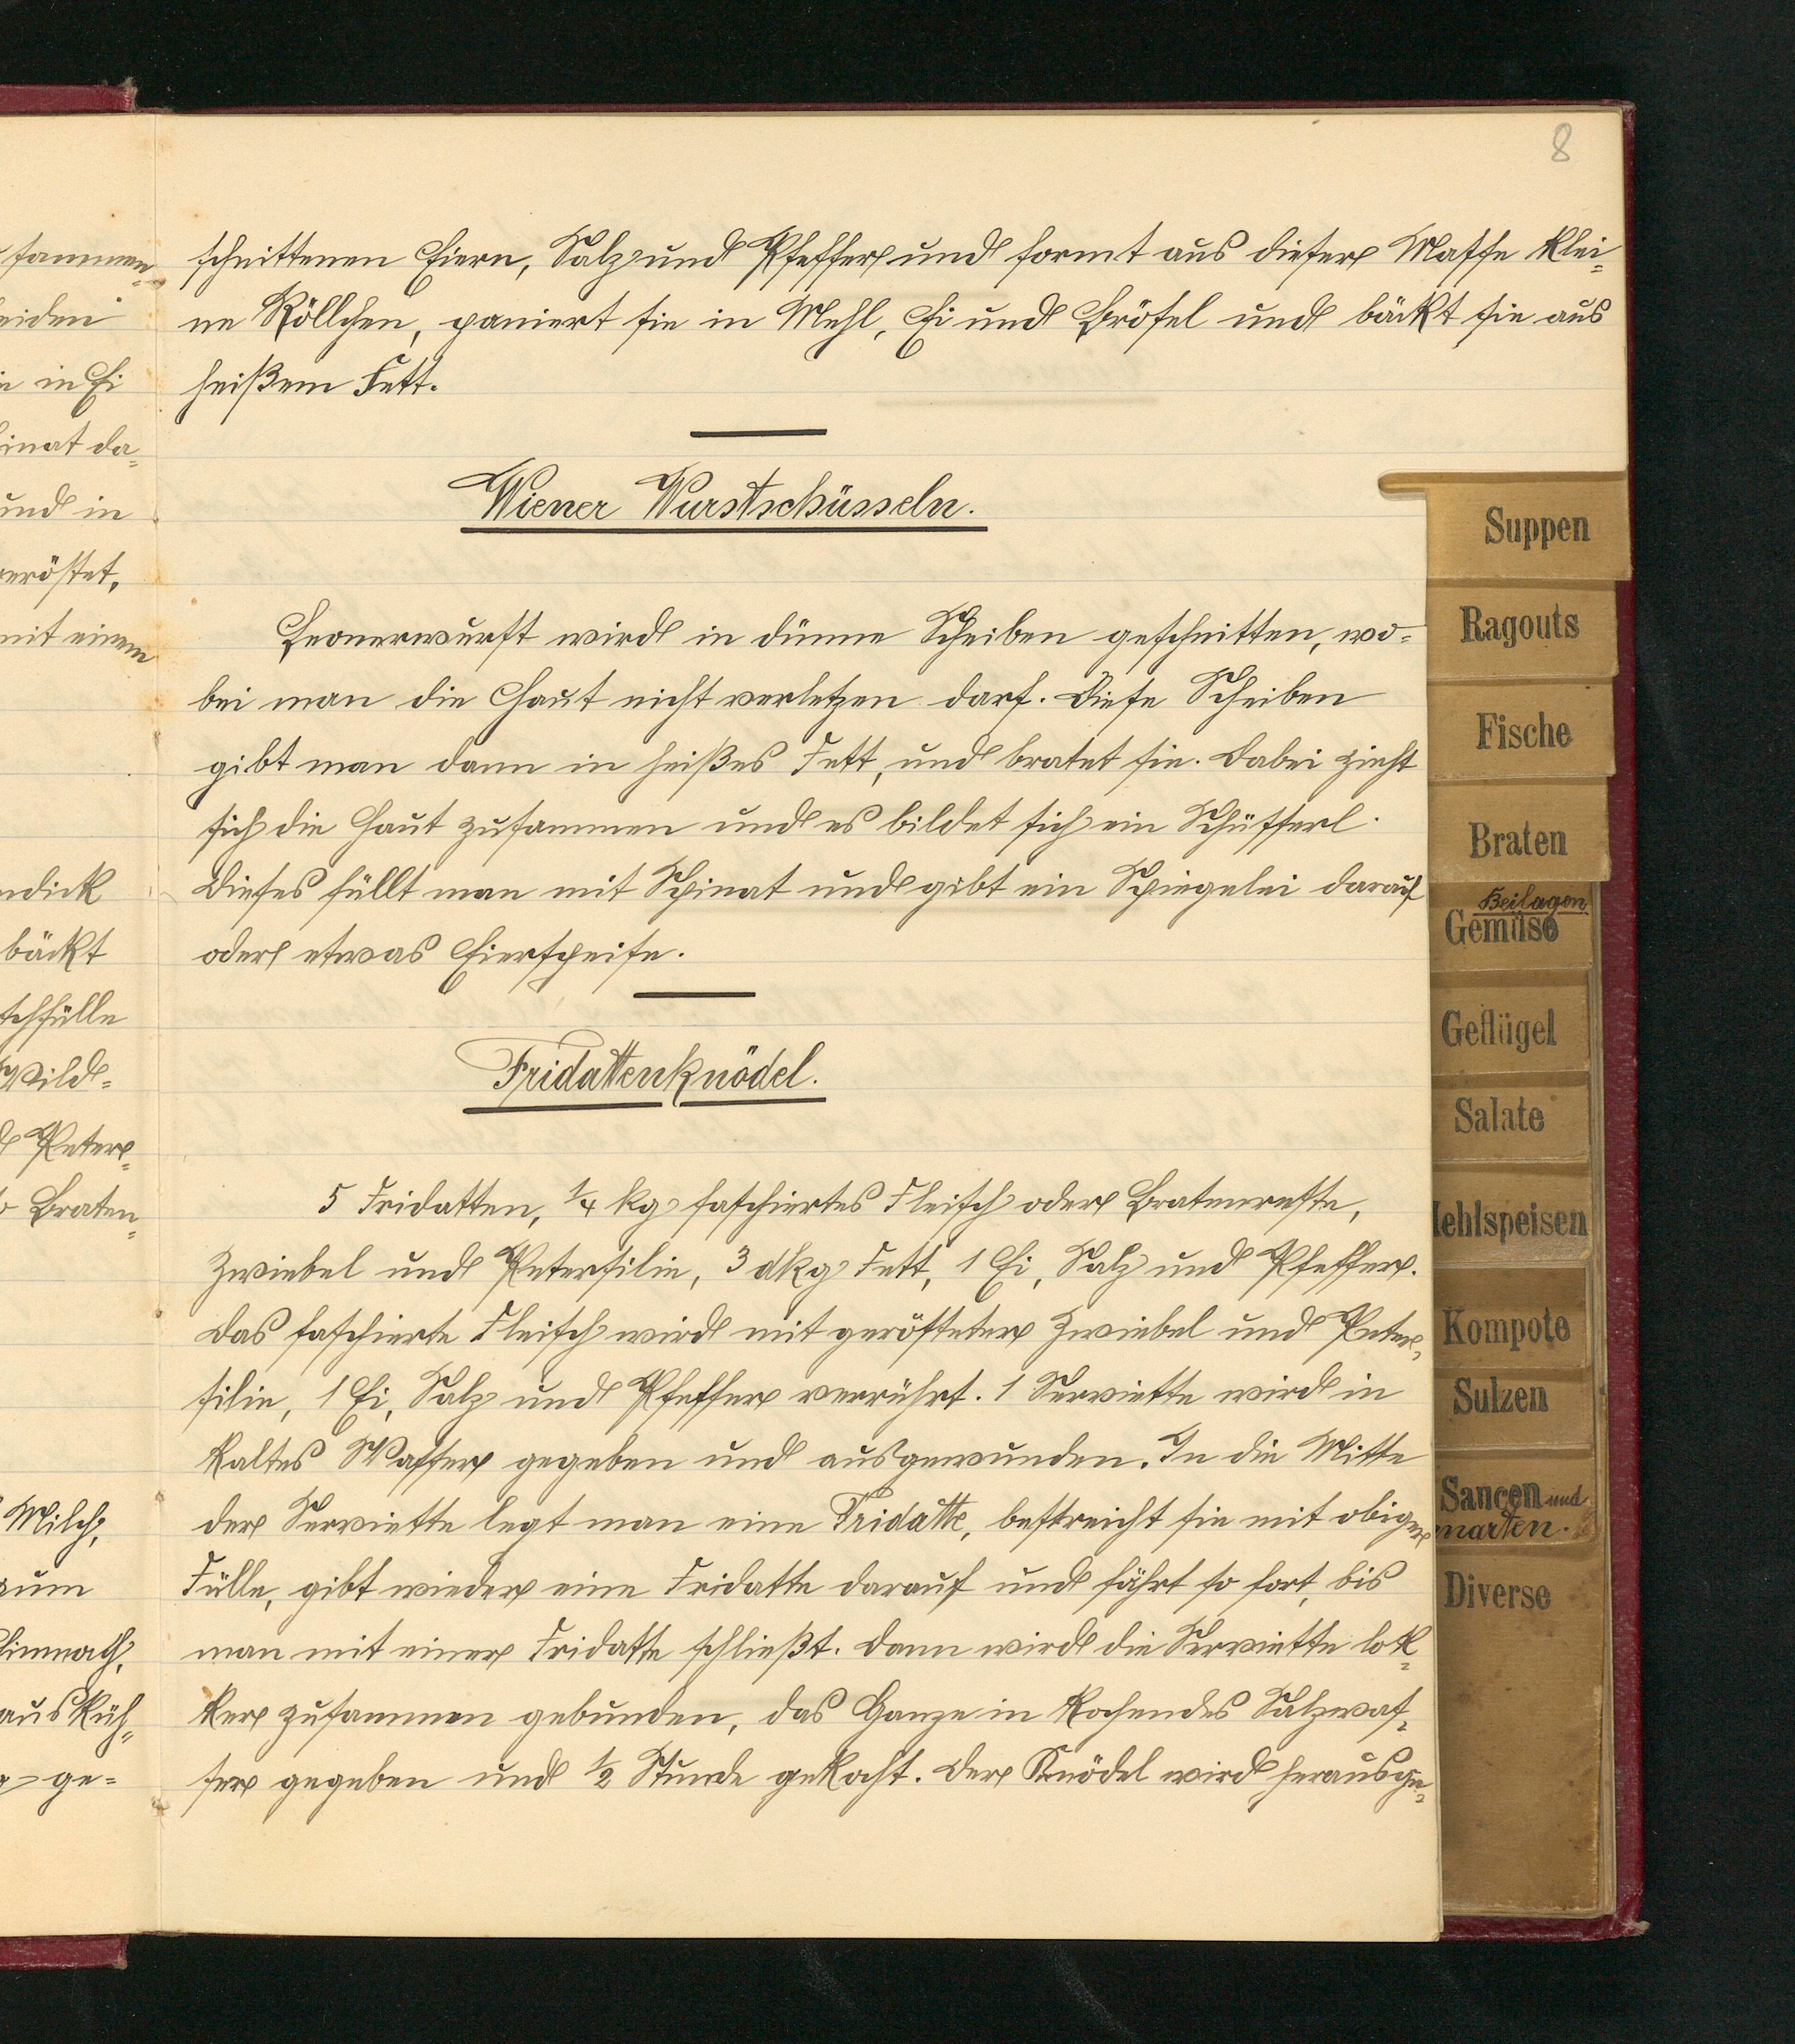 8
schnittenen Eiern, Salz und Pfeffer und formt aus dieser Masse klei=
ne Röllchen, paniert sie in Mehl, Ei und Brösel und bäckt sie aus
heißem Fett.
Wiener Wurstschüsseln.
Leonerwurst wird in dünne Scheiben geschnitten, wo=
bei man die Haut nicht verletzen darf. Diese Scheiben
gibt man dann in heißes Fett, und bratet sie. Dabei zieht
sich die Haut zusammen und es bildet sich ein Schüsserl.
Dieses füllt man mit Spinat und gibt ein Spiegelei darauf
oder etwas Eierspeise.
Fridattenknödel.
5 Fridatten, 1/4 kg faschiertes Fleisch oder Bratenreste,
Zwiebel und Petersilie, 3 dkg Fett, 1 Ei, Salz und Pfeffer.
Das faschierte Fleisch wird mit gerösteter Zwiebel und Peter=
silie, 1 Ei, Salz und Pfeffer verrührt. 1 Serviette wird in
kaltes Wasser gegeben und ausgewunden. In die Mitte
der Serviette legt man eine Fridatte, bestreicht sie mit obiger
Fülle, gibt wieder eine Fridatte darauf und fährt so fort, bis
man mit einer Fridatte schließt. Dann wird die Serviette lok=
ker zusammen gebunden, das Ganze in kochendes Salzwas=
ser gegeben und 1/2 Stunde gekocht. Der Knödel wird herausge=
sammen=
eiden
in Ei
inat da=
und in
geröstet,
mit einem
dick
bäckt
schfülle
Wild=
Peter=
Braten=
Milch,
zum
aus Küh=
ge=
Suppen
Ragouts
Fische
Braten
Beilagen
Gemüse
Geflügel
Salate
ehlspeisen
Kompote
Sulzen
Saucen und
marten.
Diverse